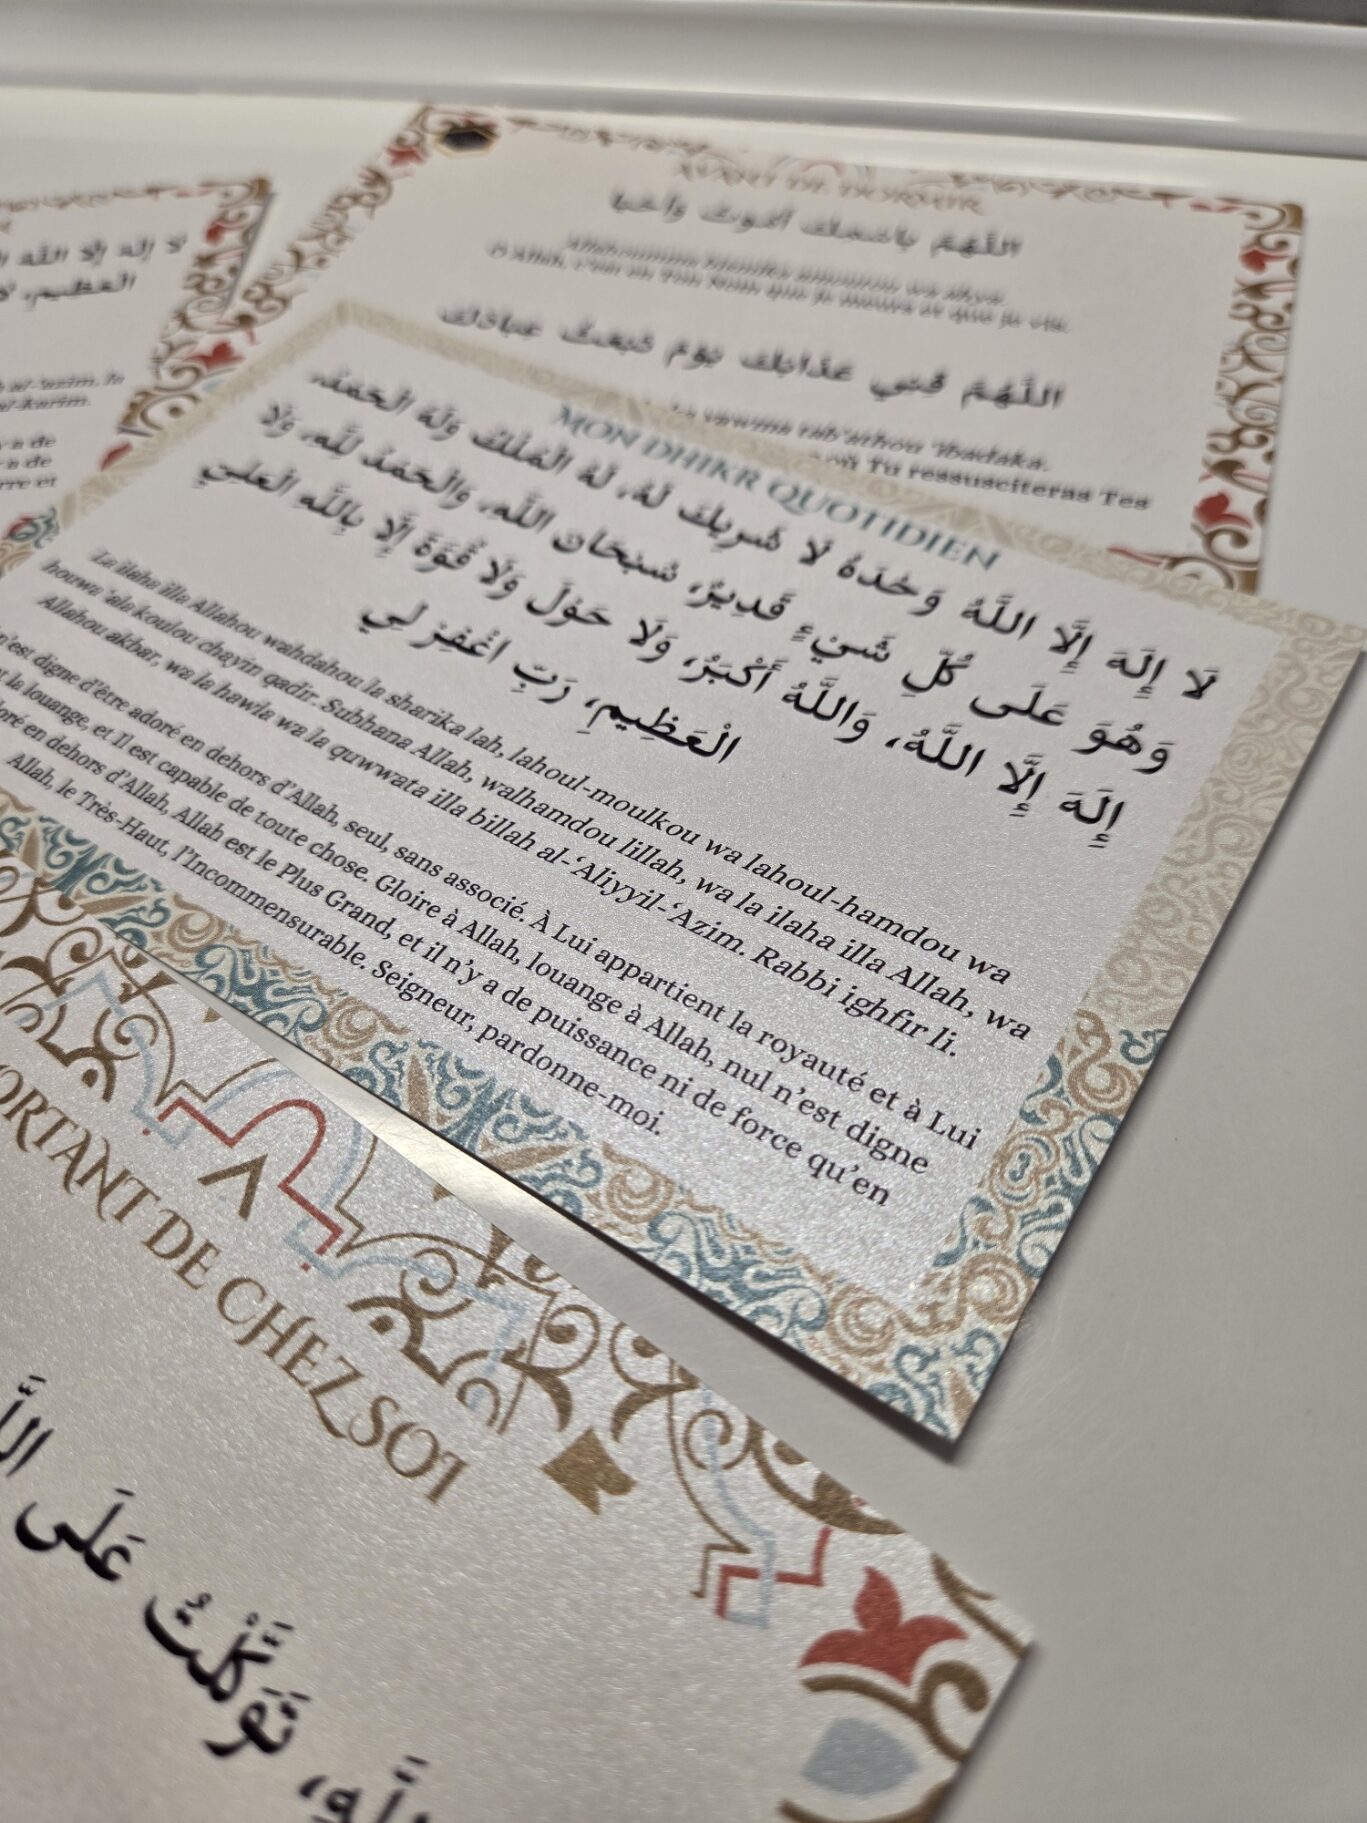 AVANT DE DORMIR
اللَّهُمَّ بِاسْمِكَ أَمُوتُ وَأَحْيَا
Ô Allah, c'est en Ton Nom que je meurs et que je vis.
اللَّهُمَّ قِنِي عَذَابَكَ يَوْمَ تَبْعَثُ عِبَادَكَ
yawma tab'athou 'ibadaka.
où Tu ressusciteras Tes
لَا إِلَهَ إِلَّا اللَّهُ
الْعَظِيمُ
al-'azim. la
al-karim.
y a de
y a de
MON DHIKR QUOTIDIEN
لَا إِلَهَ إِلَّا اللَّهُ وَحْدَهُ لَا شَرِيكَ لَهُ، لَهُ الْمُلْكُ وَلَهُ الْحَمْدُ،
وَهُوَ عَلَى كُلِّ شَيْءٍ قَدِيرٌ، سُبْحَانَ اللَّهِ، وَالْحَمْدُ لِلَّهِ، وَلَا
إِلَهَ إِلَّا اللَّهُ، وَاللَّهُ أَكْبَرُ، وَلَا حَوْلَ وَلَا قُوَّةَ إِلَّا بِاللَّهِ الْعَلِيِّ
الْعَظِيمِ، رَبِّ اغْفِرْ لِي
La ilaha illa Allahou wahdahou la sharika lah, lahoul-moulkou wa lahoul-hamdou wa
houwa 'ala koulou chayin qadir. Subhana Allah, walhamdou lillah, wa la ilaha illa Allah, wa
Allahou akbar, wa la hawla wa la quwwata illa billah al-'Aliyyil-'Azim. Rabbi ighfir li.
n'est digne d'être adoré en dehors d'Allah, seul, sans associé. À Lui appartient la royauté et à Lui
la louange, et Il est capable de toute chose. Gloire à Allah, louange à Allah, nul n'est digne
en dehors d'Allah, Allah est le Plus Grand, et il n'y a de puissance ni de force qu'en
Allah, le Très-Haut, l'Incommensurable. Seigneur, pardonne-moi.
ORTANT DE CHEZ SOI
تَوَكَّلْتُ عَلَى